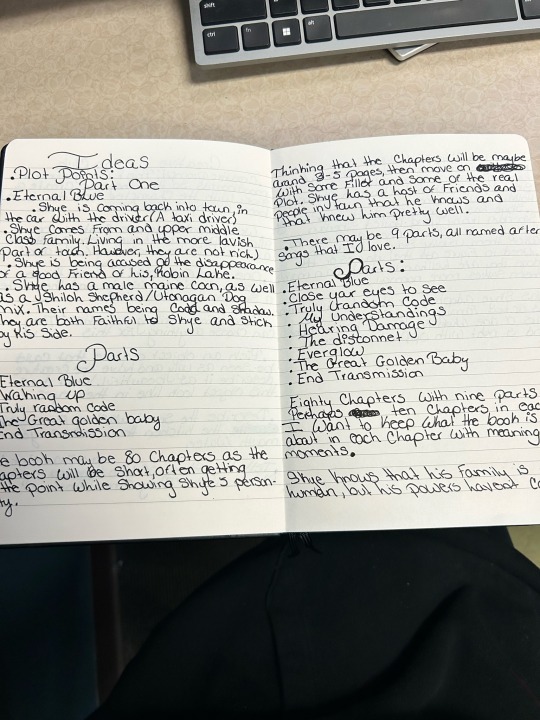 shift
ctrl
fn
alt
Ideas
• Plot Points:
Part One
• Eternal Blue
• Shye is coming back into town, in
the car with the driver (A taxi driver)
• Shye comes From and upper middle
class family. Living in the more lavish
Part of town. However, they are not rich)
• Shye is being accused of the disappearance
of a good Friend of his, Robin Lake.
• Shye has a male maine coon, as well
as a Shiloh Shepherd/Utonagan Dog
mix. Their names being and Shadow.
They are both Faithful to Shye and Stick
by his side.
Parts
Eternal Blue
Waking up
Truly random code
The Great golden baby
End Transmission
e book may be 80 Chapters as the
apters will be Short, often getting
the point while Showing Shye's person-
ty.
Thinking that the Chapters will be maybe
around 3-5 pages, then move on
with Some Filler and Some of the real
Plot. Shye has a host of Friends and
People in town that he knows and
that knew him pretty well.
• There may be 9 parts, all named after
Songs that I love.
Parts:
• Eternal Blue
• Close your eyes to see
• Truly random Code
• My understandings
• Hearing Damage
• The disconnet
• Everglow
• The Great Golden Baby
• End Transmission
Eighty Chapters with nine parts
Perhaps ten Chapters in eac
I want to keep what the book is
about in each Chapter with meaning
moments.
Shye knows that his Family is
human, but his powers havent co